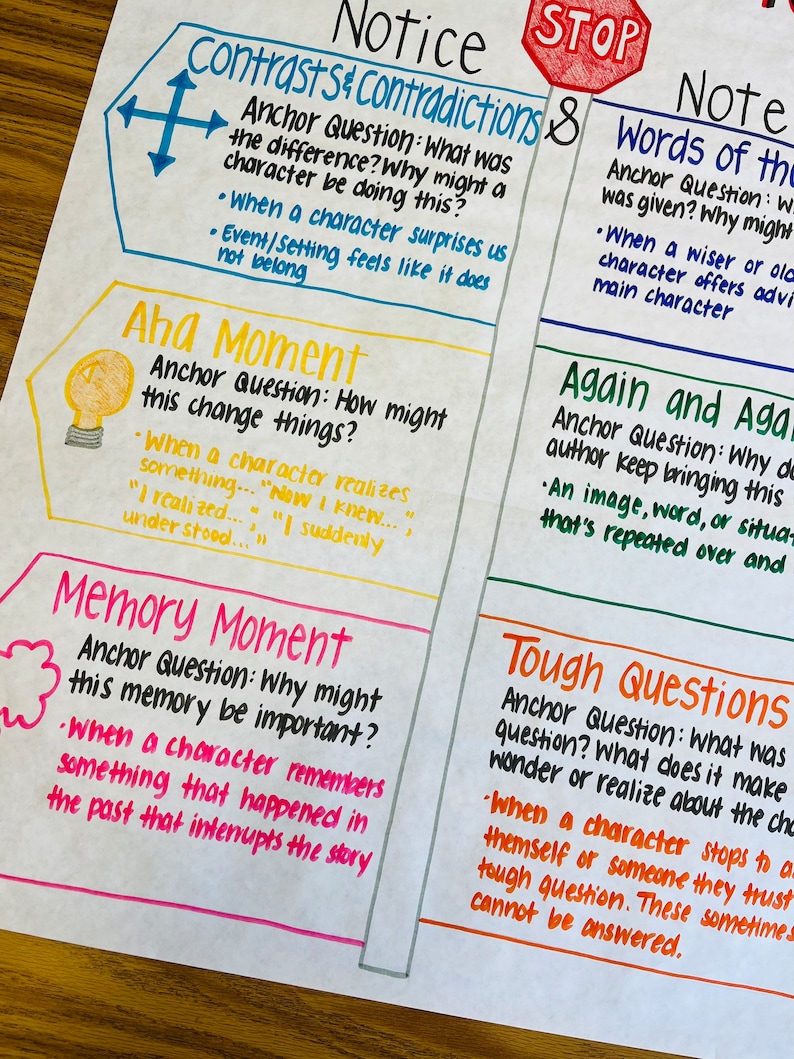 Notice
STOP
&
Note
Contrasts & Contradictions
Anchor Question: What was
the difference? Why might a
character be doing this?
• When a character surprises us
• Event/Setting feels like it does
not belong
Aha Moment
Anchor Question: How might
this change things?
• When a character realizes
something... "Now I knew...",
"I realized...", "I suddenly
understood..."
Memory Moment
Anchor Question: Why might
this memory be important?
• When a character remembers
something that happened in
the past that interrupts the story
Words of
Anchor Question:
was given? Why might
• When a wiser or
character offers
main character
Again and
Anchor Question: Why
author keep bringing this
• An image, word, or
that's repeated over and
Tough Questions
Anchor Question: What was
question? What does it make
wonder or realize about the
• When a character stops to
themself or someone they trust
tough question. These sometimes
cannot be answered.